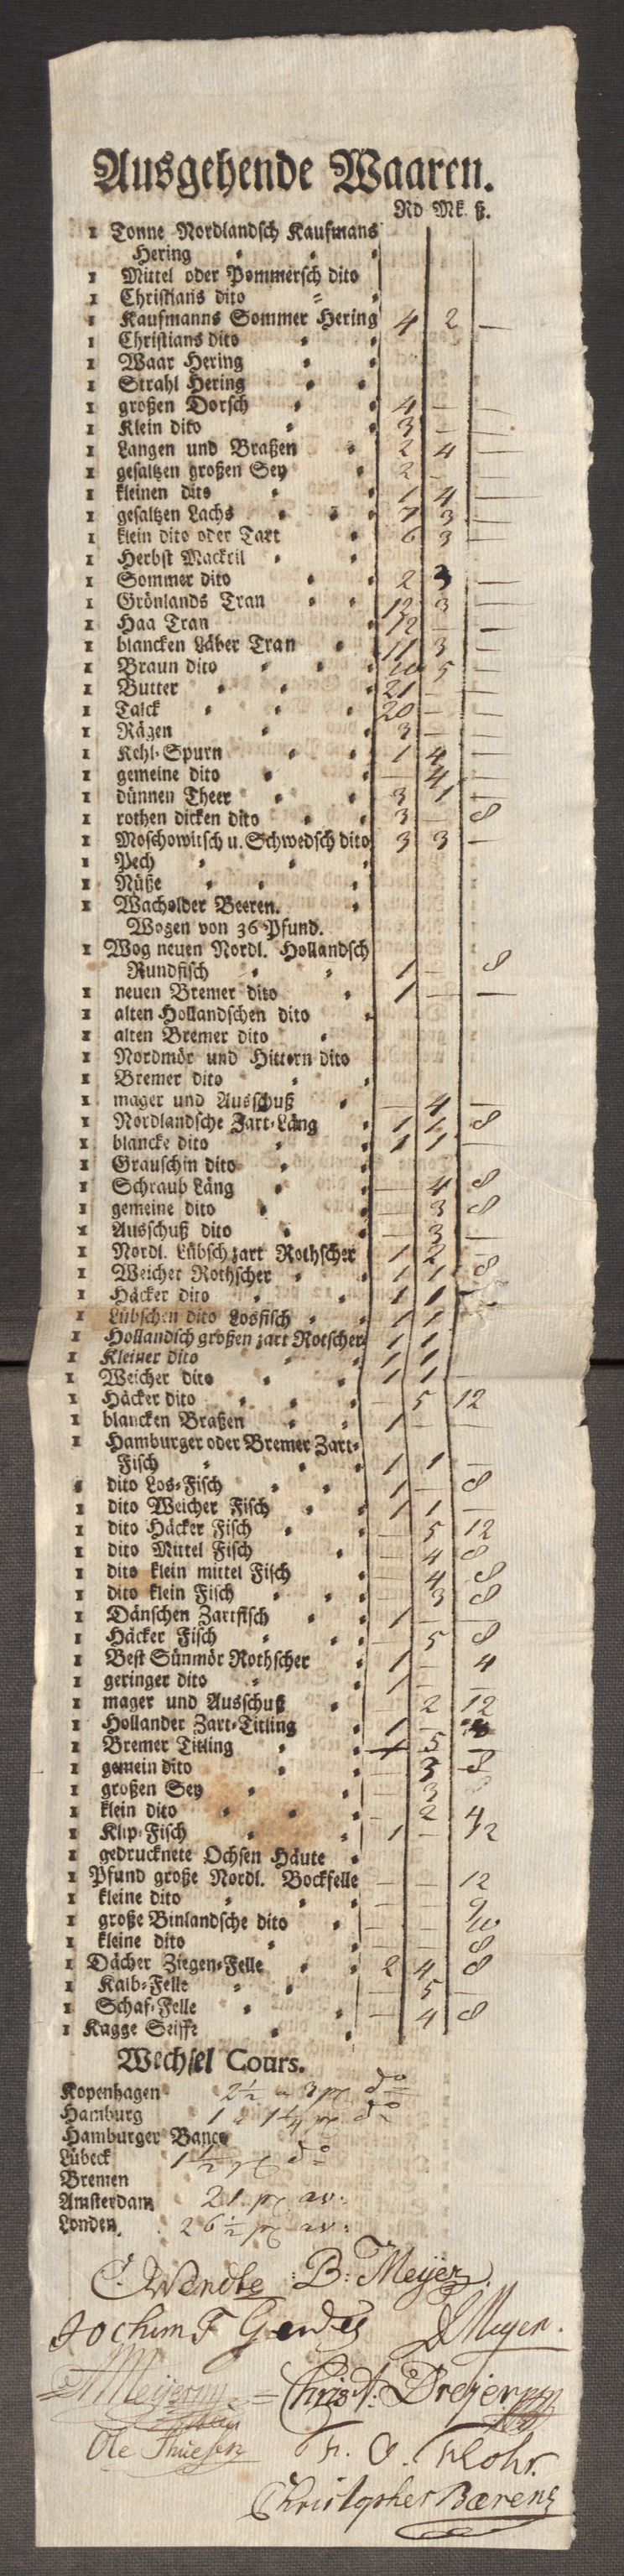 Ausgehende Waaren.
Rd Mk. ß.
1 Tonne Nordlandsch Kaufmans
Hering
1 Mittel oder Pommersch dito
1 Christians dito
1 Kaufmanns Sommer Hering 4 2 —
1 Christians dito
1 Waar Hering
1 Strahl Hering
1 großen Dorsch 4 — —
1 Klein dito 3 — —
1 Langen und Braßen 2 4 —
1 gesaltzen großen Sey 2 — —
1 kleinen dito 1 4 —
1 gesaltzen Lachs 7 3 —
1 klein dito oder Tart 6 3 —
1 Herbst Mackril
1 Sommer dito 2 3 —
1 Grönlands Tran 12 3 —
1 Haa Tran 12 — —
1 blancken Läber Tran 11 3 —
1 Braun dito 10 5 —
1 Butter 21 — —
1 Talck 20 — —
1 Rägen 3 — —
1 Kehl-Spurn 1 4 —
1 gemeine dito — 4 —
1 dünnen Theer 3 1 —
1 rothen dicken dito 3 — 8
1 Moschowitsch u. Schwedsch dito 3 3 —
1 Pech
1 Nüße
1 Wacholder Beeren.
Wogen von 36 Pfund.
1 Wog neuen Nordl. Hollandsch
Rundfisch 1 — 8
1 neuen Bremer dito 1 — —
1 alten Hollandschen dito
1 alten Bremer dito
1 Nordmör und Hittern dito
1 Bremer dito
1 mager und Ausschuß — 4 —
1 Nordlandsche Zart-Läng 1 1 8
1 blancke dito 1 1 —
1 Grauschin dito
1 Schraub Läng — 4 8
1 gemeine dito — 3 8
1 Ausschuß dito — 3 —
1 Nordl. Lübsch zart Rothscher 1 2 —
1 Weicher Rothscher 1 1 8
1 Häcker dito 1 1 —
1 Lübschen dito Losfisch 1 1 —
1 Hollandsch großen zart Rotscher 1 1
1 Kleiner dito 1 1
1 Weicher dito 1 1 —
1 Häcker dito — 5 12
1 blancken Braßen 1 — —
1 Hamburger oder Bremer Zart-
Fisch 1 1 —
1 dito Los-Fisch 1 — 8
1 dito Weicher Fisch 1 1 —
1 dito Häcker Fisch — 5 12
1 dito Mittel Fisch — 4 8
1 dito klein mittel Fisch — 4 8
1 dito klein Fisch — 3 8
1 Dänschen Zartfisch 1 — —
1 Häcker Fisch — 5 8
1 Best Sünmör Rothscher 1 — 4
1 geringer dito 1 — —
1 mager und Ausschuß — 2 12
1 Hollander Zart-Titling 1 —
1 Bremer Titling — 5 —
1 gemein dito — 3 8
1 großen Sey — 3 8
1 klein dito — 2 4
1 Klip-Fisch 1 — 12
1 gedrucknete Ochsen Häute
1 Pfund große Nordl. Bockfelle — — 12
1 kleine dito — — 9
1 große Binlandsche dito — — 10
1 kleine dito — — 8
1 Dächer Ziegen-Felle 2 4 8
1 Kalb-Felle — 5 —
1 Schaf-Felle — 4 8
1 Kagge Seiffe
Wechsel Cours.
Kopenhagen 2½ a 3 pC do
Hamburg 1 a 1¼ pC do
Hamburger Banco
Lübeck 1½ pC do
Bremen
Amsterdam 21 pC av:
Londen. 26½ pC av:
C. Wendte B: Meyer
Jochim F Gerdes D Meyer.
A Meijer Christ: Dreyer
Ole Thuesen H. O. Flohr.
Christopher Bærens